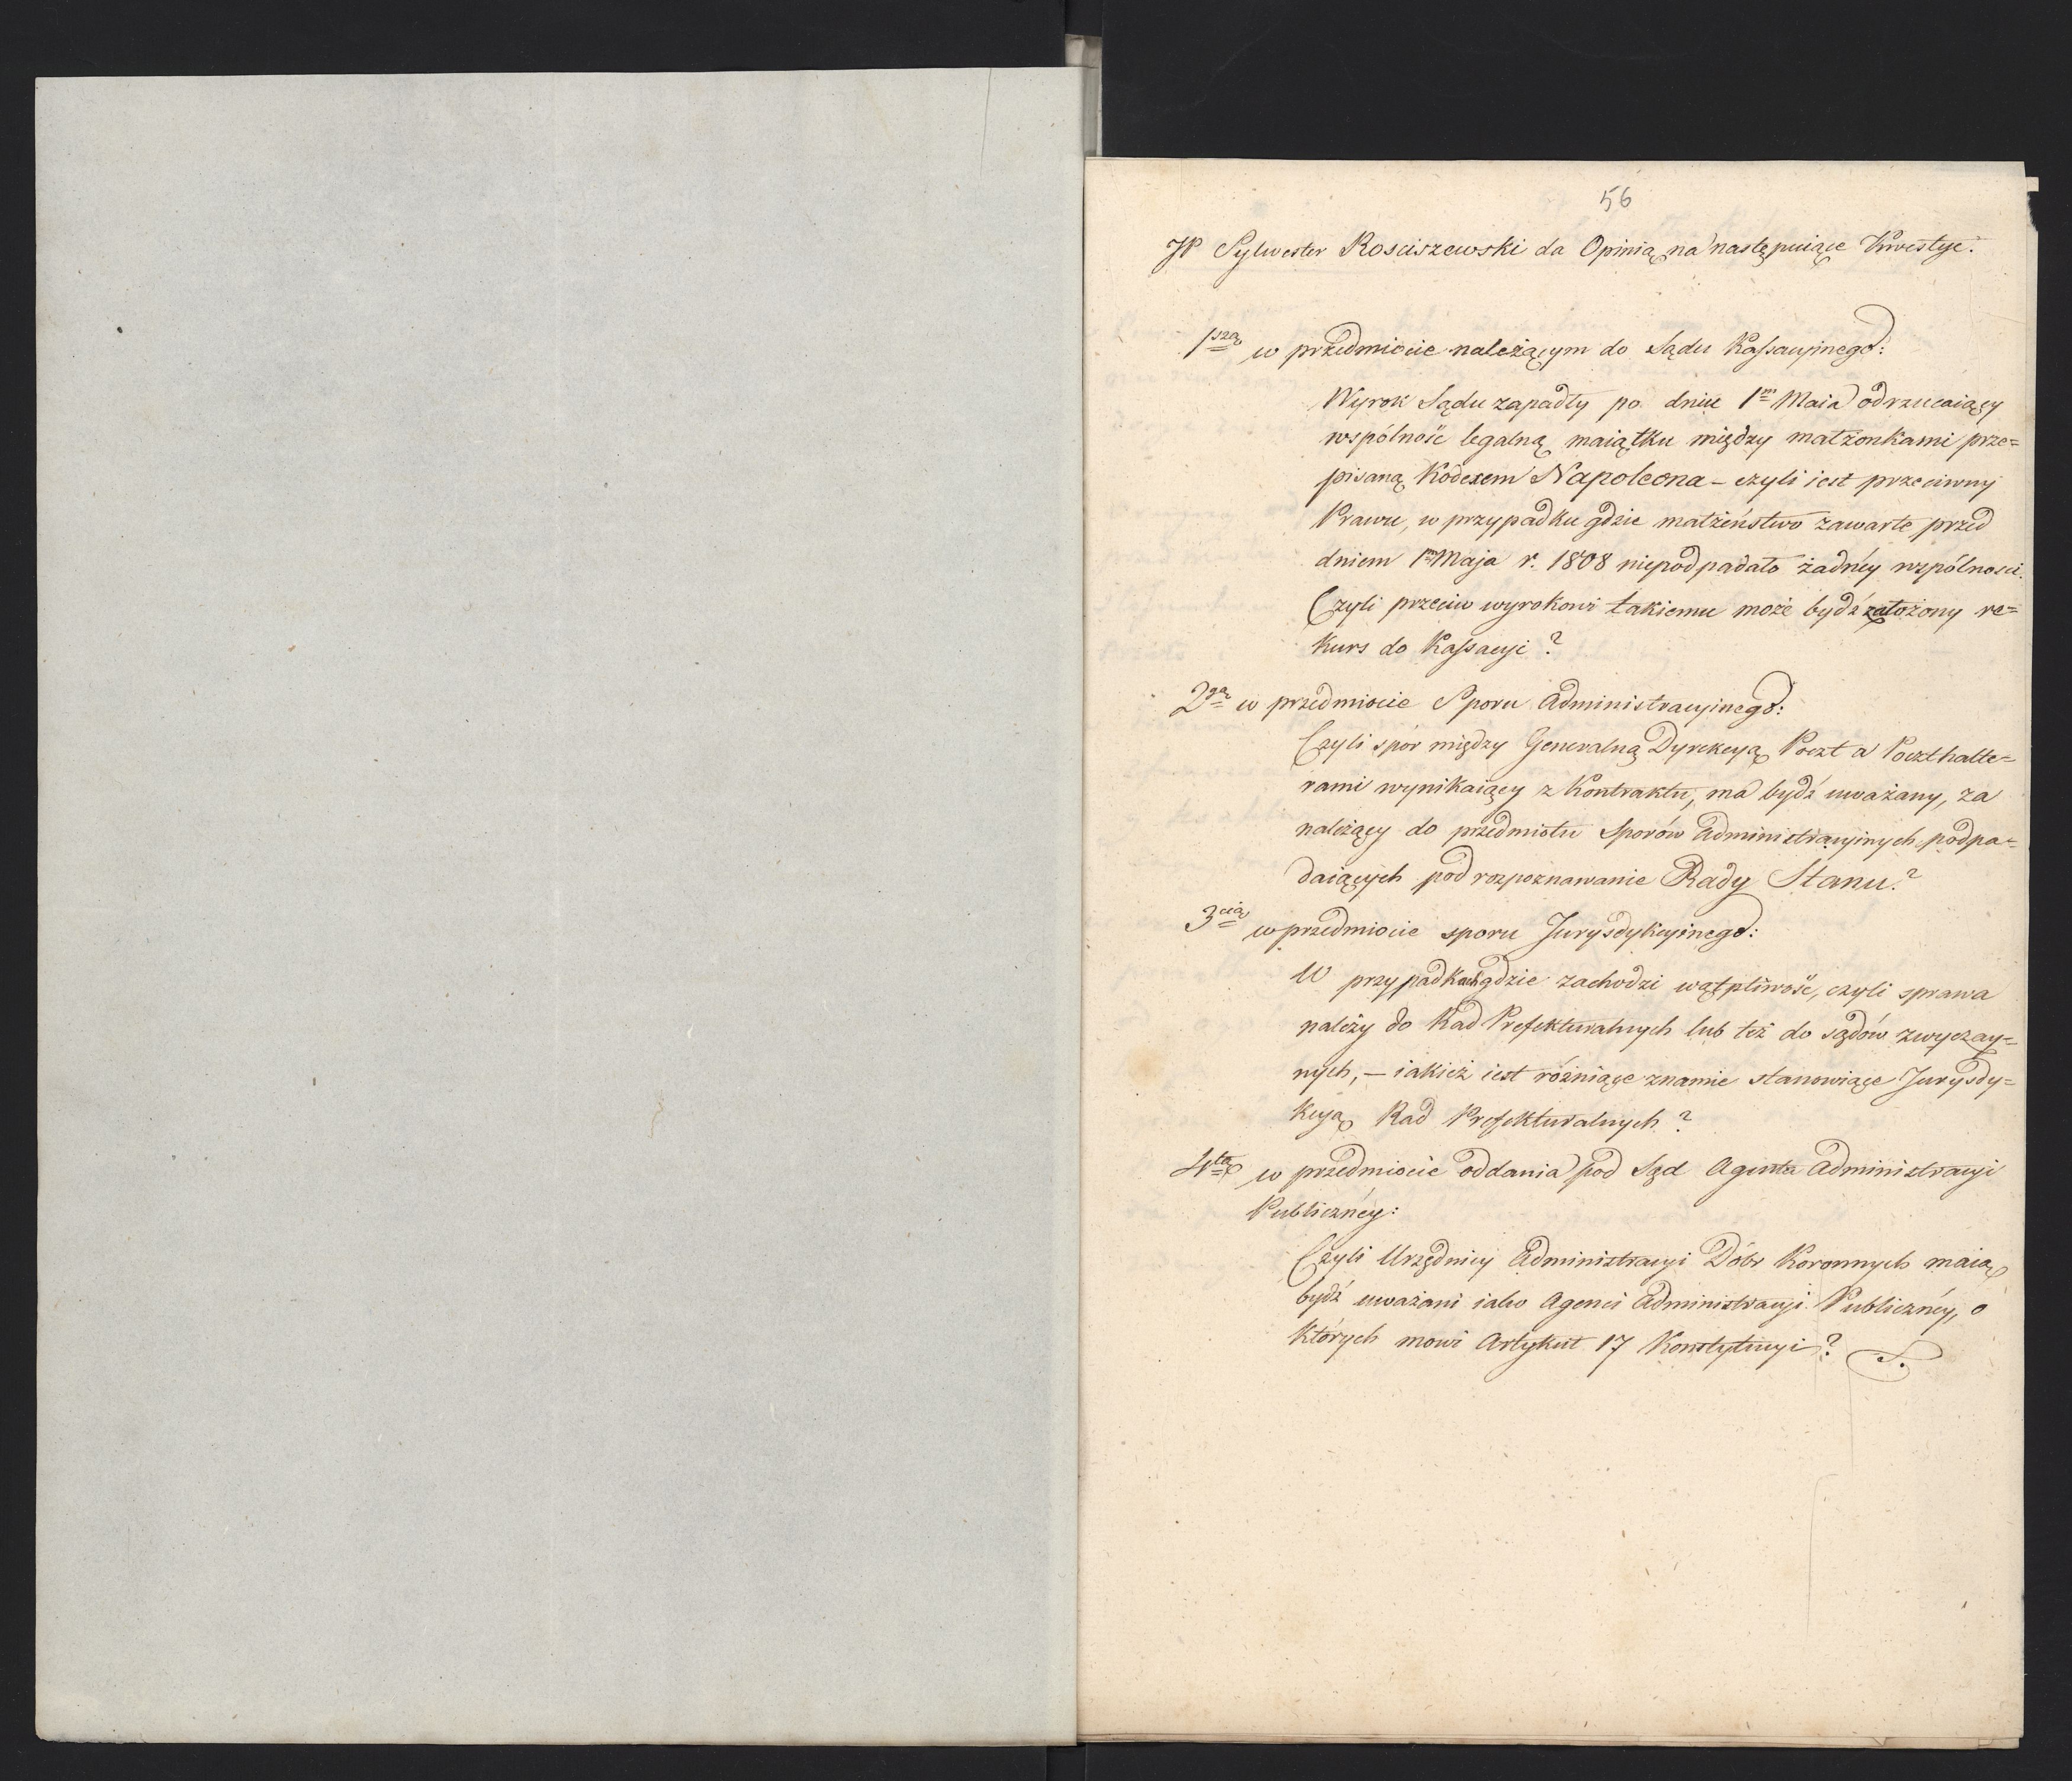 56
JP Sylwester Rosciszewski da Opinią na następuiące Kwestye.
1szą w przedmiocie należącym do Sądu Kassacyjnego:
Wyrok Sądu zapadły po dniu 1m Maia odrzucaiący
wspólność legalną maiątku między małżonkami prze=
pisaną Kodexem Napoleona – czyli iest przeciwny
Prawu, w przypadku gdzie małżeństwo zawarte przed
dniem 1m Maja r. 1808 niepodpadało żadnéy wspólnosci.
Czyli przeciw wyrokowi takiemu może bydź założony re=
kurs do Kassacyi?
2gą w przedmiocie Sporu Administracyinego:
Czyli spór między Generalną Dyrekcyą Poczt a Poczthalte=
rami wynikaiący z Kontraktu, ma bydź uważany, za
należący do przedmiotu Sporów Administracyinych podpa=
daiących pod rozpoznawanie Rady Stanu?
3cią w przedmiocie sporu Jurysdykcyinego:
W przypadkach gdzie zachodzi wątpliwość, czyli sprawa
należy do Rad Prefekturalnych lub też do sądów zwyczay=
nych, – iakież iest różniące znamie stanowiące Jurysdy=
kcyą Rad Prefekturalnych?
4tą w przedmiocie oddania pod Sąd Agenta Administracyi
Publicznéy:
Czyli Urzędnicy Administracyi Dóbr Koronnych maią
bydź uważani iako Agenci Administracyi Publicznéy, o
których mowi Artykuł 17 Konstytucyi?